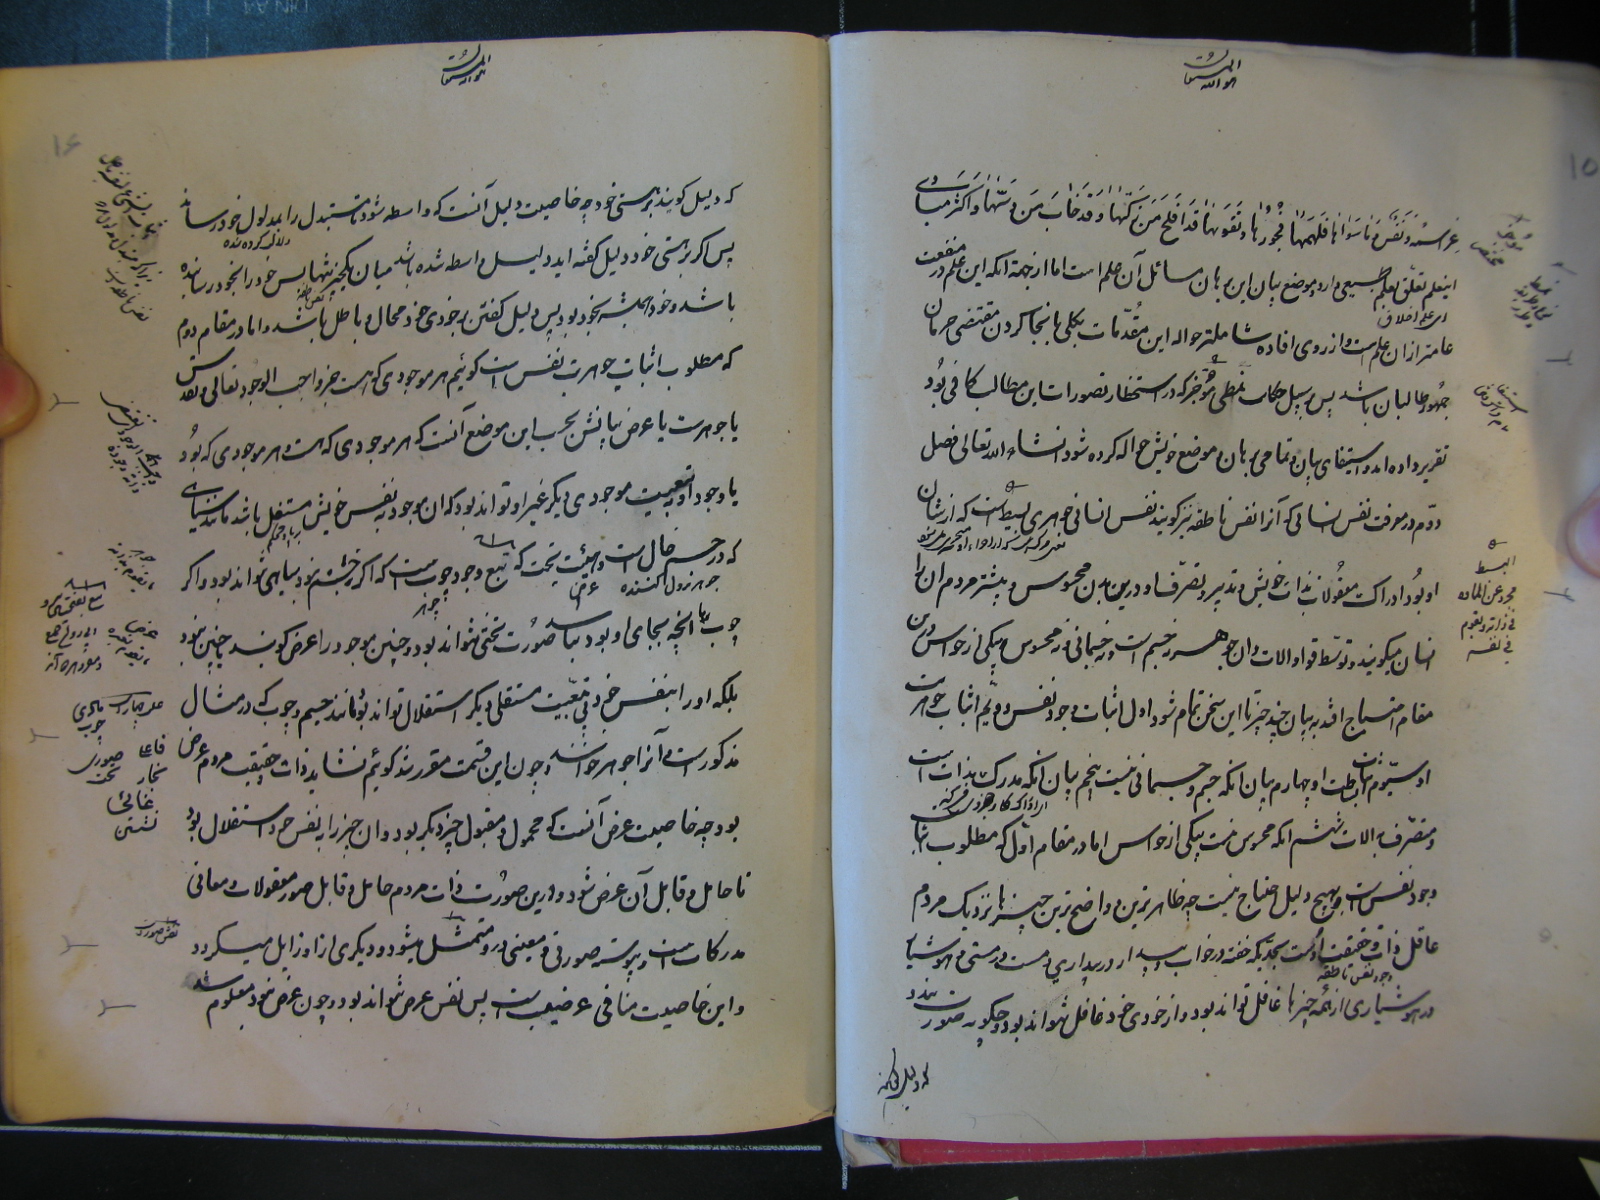 هو الله المستعان
۱۵
عز اسمه و نفس و ما سواها فالهمها فجورها و تقوها قد افلح من زکها و قد خاب من دسها و اکثر مبادی
اینعلم تعلق بعلم طبیعی دارد و موضع بیان این برهان مسائل آن علم است اما از جهة انکه این علم در منفعت
ای علم اخلاق
عامتر ازان علم است و از روی افاده شاملتر حواله این مقدمات بکلی بانجا کردن مقتضی حرمان
جمهور طالبان باشد پس بر سبیل حکایت نمطی موجز که در استحضار تصورات این مطالب کافی بود
تقریر داده اید و استیفای بیان و تمامی برهان و موضع خویش حواله کرده شود انشاء الله تعالی فصل
دوم در معرفت نفس انسانی که آنرا نفس ناطقه نیز کویند نفس انسانی جوهری بسیط است که از شان
او بود ادراک معقولات بذات خویش و تدبیر و تصرف او درین بدن محسوس و بیشتر مردم آن را
انسان میکویند بتوسط قوا و الات و ان جوهر نه جسم است و نه جسمانی و نه محسوس بیکی از حواس و درین
مقام احتیاج افتد به بیان چند چیز تا این سخن تمام شود اول اثبات وجود نفس و دویم اثبات جوهریت
او سیوم اثبات بساطت او چهارم بیان انکه جسم و جسمانی نیست پنجم بیان انکه مدرک بذات است
و متصرف بالات ششم انکه محسوس نیست بیکی از حواس اما در مقام اول که مطلوب اثبات
وجود نفس است بهیچ دلیل احتیاج نیست چه ظاهر ترین و واضح ترین چیزها نزدیک مردم
عاقل ذات و حقیقت اوست بحدیکه خفته در خواب و بیدار در بیداری و مست در مستی و هوشیار
وجود نفس ناطقه
در هوشیاری از همه چیزها غافل تواند بود و از خودی خود غافل نتواند بود و چکونه صورت بندد
که دلیل کویند
البسیط
مجرد عن الماده
فی ذاته و یقوم
فی نفسه
هو الله المستعان
۱۶
که دلیل کویند بر هستی خود چه خاصیت دلیل آنست که واسطه شود تا مستدل را بمدلول خود رساند
دلالت کرده شده
پس اکر بر هستی خود دلیل کفته اید دلیل واسطه شده باشد میان یکچیز تنها پس خود را بخود رسانیده
نفس ناطقه
باشد و خود همیشه بخود بود پس دلیل کفتن بر خودی خود محال و باطل باشد و اما در مقام دوم
که مطلوب اثبات جوهریت نفس است کوئیم هر موجودی که هست جز واجب الوجود تعالی و تقدس
یا جوهر است یا عرض بیانش بحسب این موضع آنست که هر موجودی که هست و هر موجودی که بود
یا وجود او بتبعیت موجودی دیکر غیر او تواند بود که ان موجود به نفس خویش مستقل باشد مانند سیاهی
که در جسم حال است و هیئت تخت که تبع وجود چوب است که اکر جسم نبود سیاهی نتواند بود و اکر
چوب یا انچه بجای او بود نباشد صورت تختی نتواند بود و چنین موجود را عرض کویند یا چنین نبود
بلکه او را بنفس خود بی تبعیت مستقلی دیکر استقلال تواند بود مانند جسم و چوب که در مثال
مذکور است و آنرا جوهر خوانند و چون این قسمت مقرر شد کوئیم نشاید ذات و حقیقت مردم عرض
بود چه خاصیت عرض آنست که محمول و مقبول چیز دیکر بود و ان چیز را به نفس خود استقلال بود
تا حامل و قابل آن عرض شود و درین صورت ذات مردم حامل و قابل صور معقولات و معانی
مدرکات است و پیوسته صورتی و معنی در و متمثل میشود و دیکری ازو زایل میکردد
و این خاصیت منافی عرضیت است پس نفس عرض نتواند بود و چون عرض نبود معلوم شد
جوهر
عرض
علت مادی
چوب
فاعلی صوری
نجار تخت
غائی
نشستن
نقش صورت